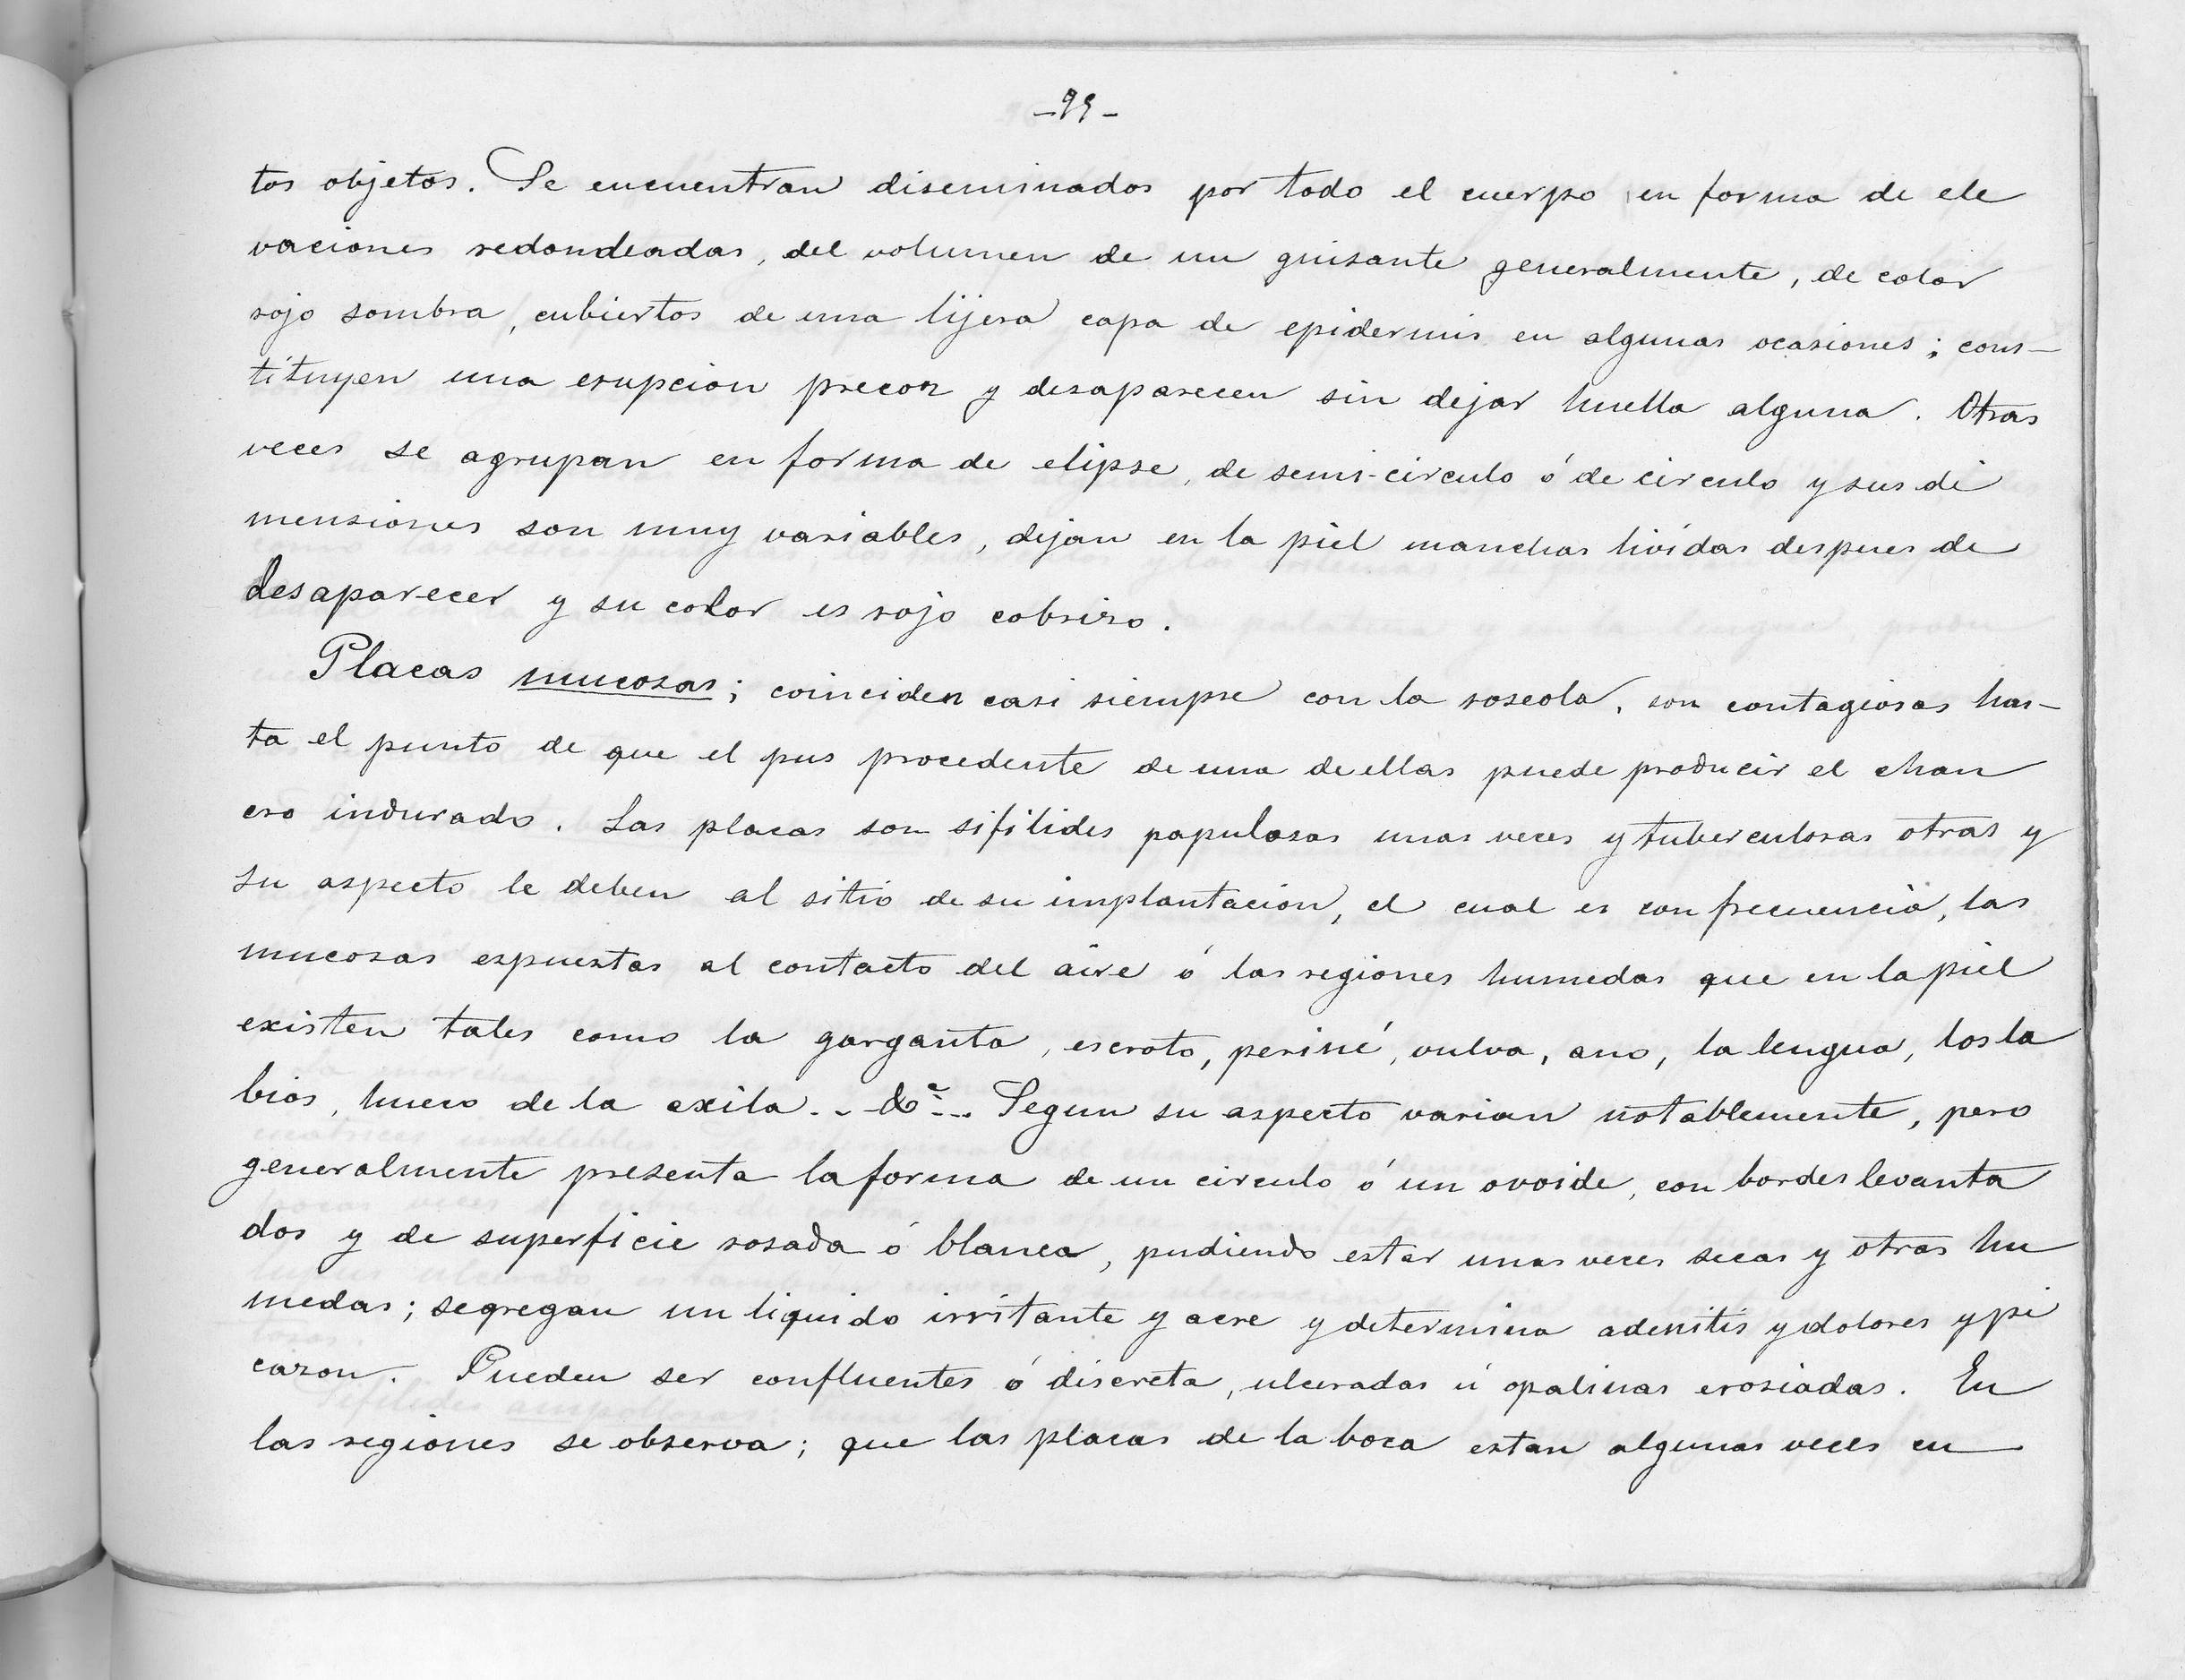 -99-
tos objetos. Se encuentran diseminados por todo el cuerpo en forma de ele
vaciones redondeadas, del volumen de un guisante generalmente, de color
rojo sombra, cubiertos de una lijera capa de epidermis en algunas ocasiones; cons-
tituyen una erupcion precoz y desaparecen sin dejar huella alguna. Otras
veces se agrupan en forma de elipse, de semi-circulo ó de circulo y sus di
mensiones son muy variables, dejan en la piel manchas lividas despues de
desaparecer y su color es rojo cobrizo.
Placas mucosas; coinciden casi siempre con la roseola, son contagiosas has-
ta el punto de que el pus procedente de una de ellas puede producir el chan
cro indurado. Las placas son sifilides papulosas unas veces y tuberculosas otras y
su aspecto le deben al sitio de su implantacion, el cual es con frecuencia, las
mucosas espuestas al contacto del aire ó las regiones humedas que en la piel
existen tales como la garganta, escroto, periné, vulva, ano, la lengua, los la
bios, hueco de la axila... &ª... Segun su aspecto varian notablemente, pero
generalmente presenta la forma de un circulo ó un ovoide, con bordes levanta
dos y de superficie rosada ó blanca, pudiendo estar unas veces secas y otras hu
medas; segregan un liquido irritante y acre y determina adenitis y dolores y pi
cazon. Pueden ser confluentes ó discreta, ulceradas ú opalinas erosiadas. En
las regiones se observa; que las placas de la boca estan algunas veces en